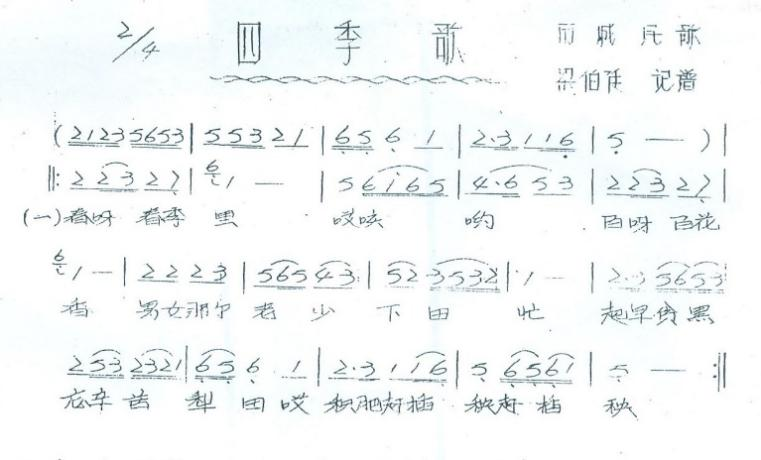 2/4 四季歌 雨城民歌
梁伯廷 记谱
( 2123 5653 | 553 21 | 65 6 1 | 2·3 116 | 5 — ) |
‖: 2 23 27 | 1 — | 5 6i65 | 4·6 53 | 2 23 27 |
(一)春呀 春季 里 哎唉 哟 百呀 百花
1 — | 22 23 | 565 43 | 52 3532 | 1 — | 2·3 5653
香 男女那个老少下田忙 起早贪黑
253 2321 | 65 6 1 | 2·3 116 | 5 6561 | 5 — :‖
忘辛苦 犁田哎 积肥赶插 秧赶插 秧